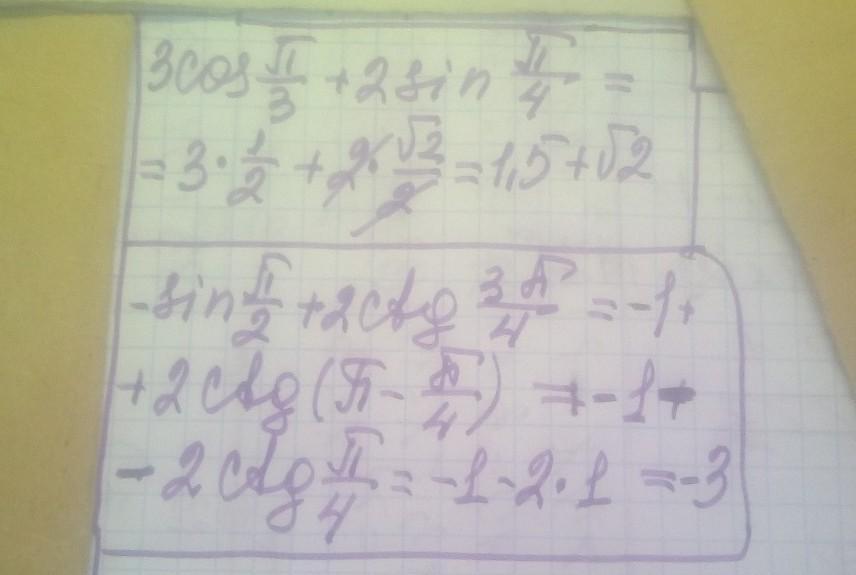 3cos π/3 + 2 sin π/4 =
= 3 · 1/2 + 2 · √2/2 = 1,5 + √2
-sin π/2 + 2 ctg 3π/4 = -1 +
+ 2 ctg (π - π/4) = -1 -
- 2 ctg π/4 = -1 - 2 · 1 = -3